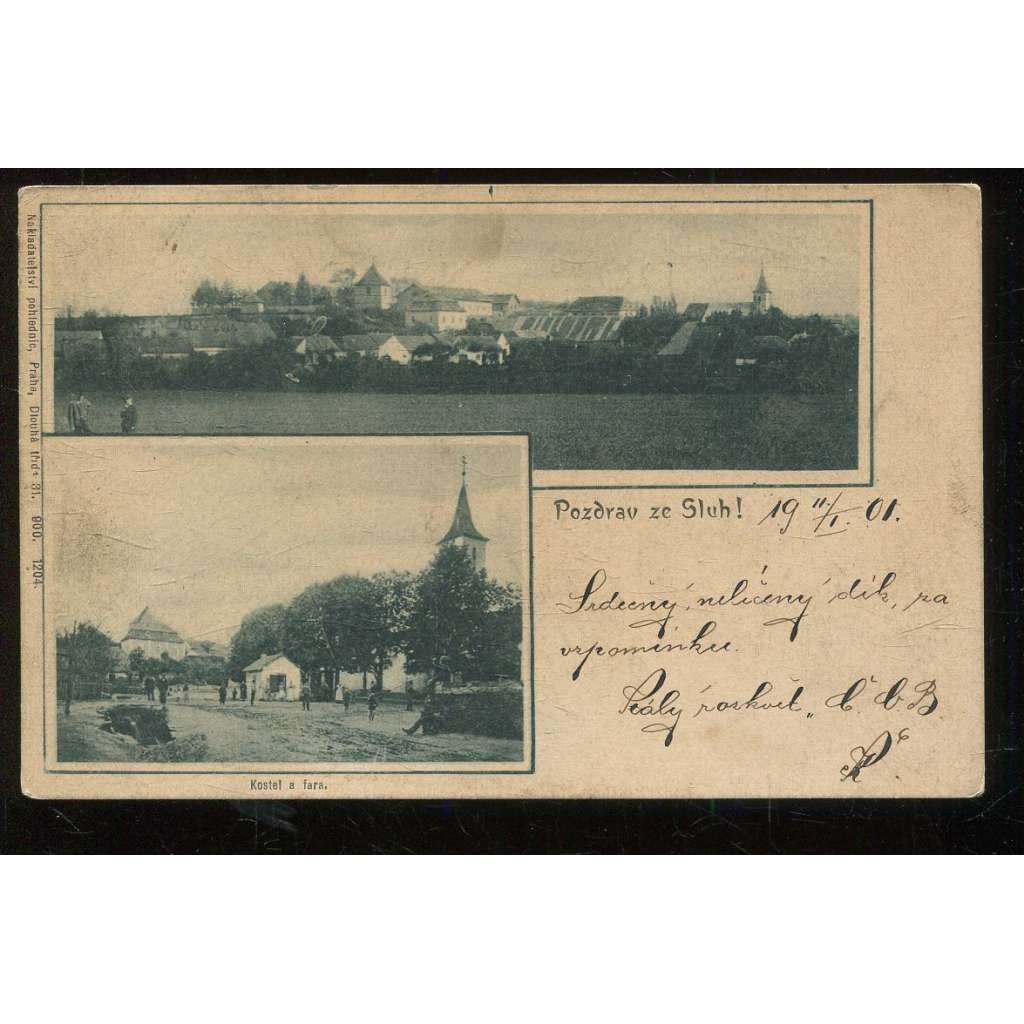 Nakladatelství pohlednic, Praha, Dlouhá třída 31. 900. 1204.
Pozdrav ze Sluh! 19 11/I. 01.
Srdečný, neličený dík, za
vzpomínku.
Stálý rozkvět „Č. Č. B
Kostel a fara.